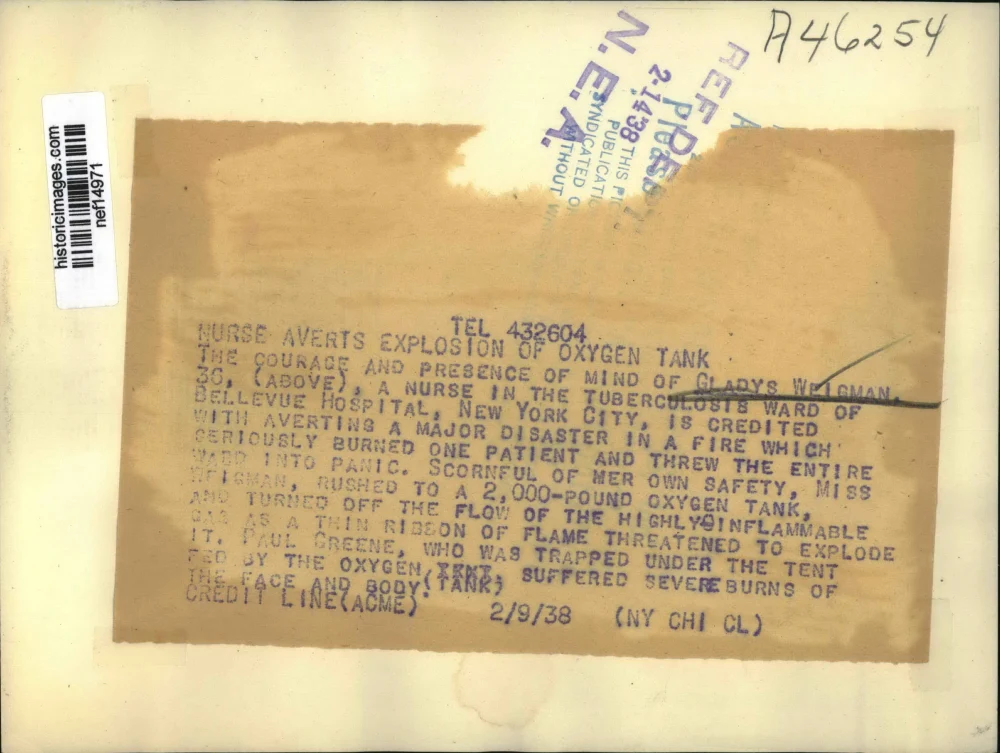 A46254
N.E.A.
REF DE
2-14-38
THIS PIC
PUBLICATI
SYNDICATED O
WITHOUT W
historicimages.com
nef14971
TEL 432604
NURSE AVERTS EXPLOSION OF OXYGEN TANK
THE COURAGE AND PRESENCE OF MIND OF GLADYS WEIGMAN,
30, (ABOVE), A NURSE IN THE TUBERCULOSIS WARD OF
BELLEVUE HOSPITAL, NEW YORK CITY, IS CREDITED
WITH AVERTING A MAJOR DISASTER IN A FIRE WHICH
SERIOUSLY BURNED ONE PATIENT AND THREW THE ENTIRE
WARD INTO PANIC. SCORNFUL OF HER OWN SAFETY, MISS
WEIGMAN, RUSHED TO A 2,000-POUND OXYGEN TANK,
AND TURNED OFF THE FLOW OF THE HIGHLY INFLAMMABLE
GAS AS A THIN RIBBON OF FLAME THREATENED TO EXPLODE
IT. PAUL GREENE, WHO WAS TRAPPED UNDER THE TENT
FED BY THE OXYGEN TENT, (TANK) SUFFERED SEVERE BURNS OF
THE FACE AND BODY.
CREDIT LINE(ACME) 2/9/38 (NY CHI CL)